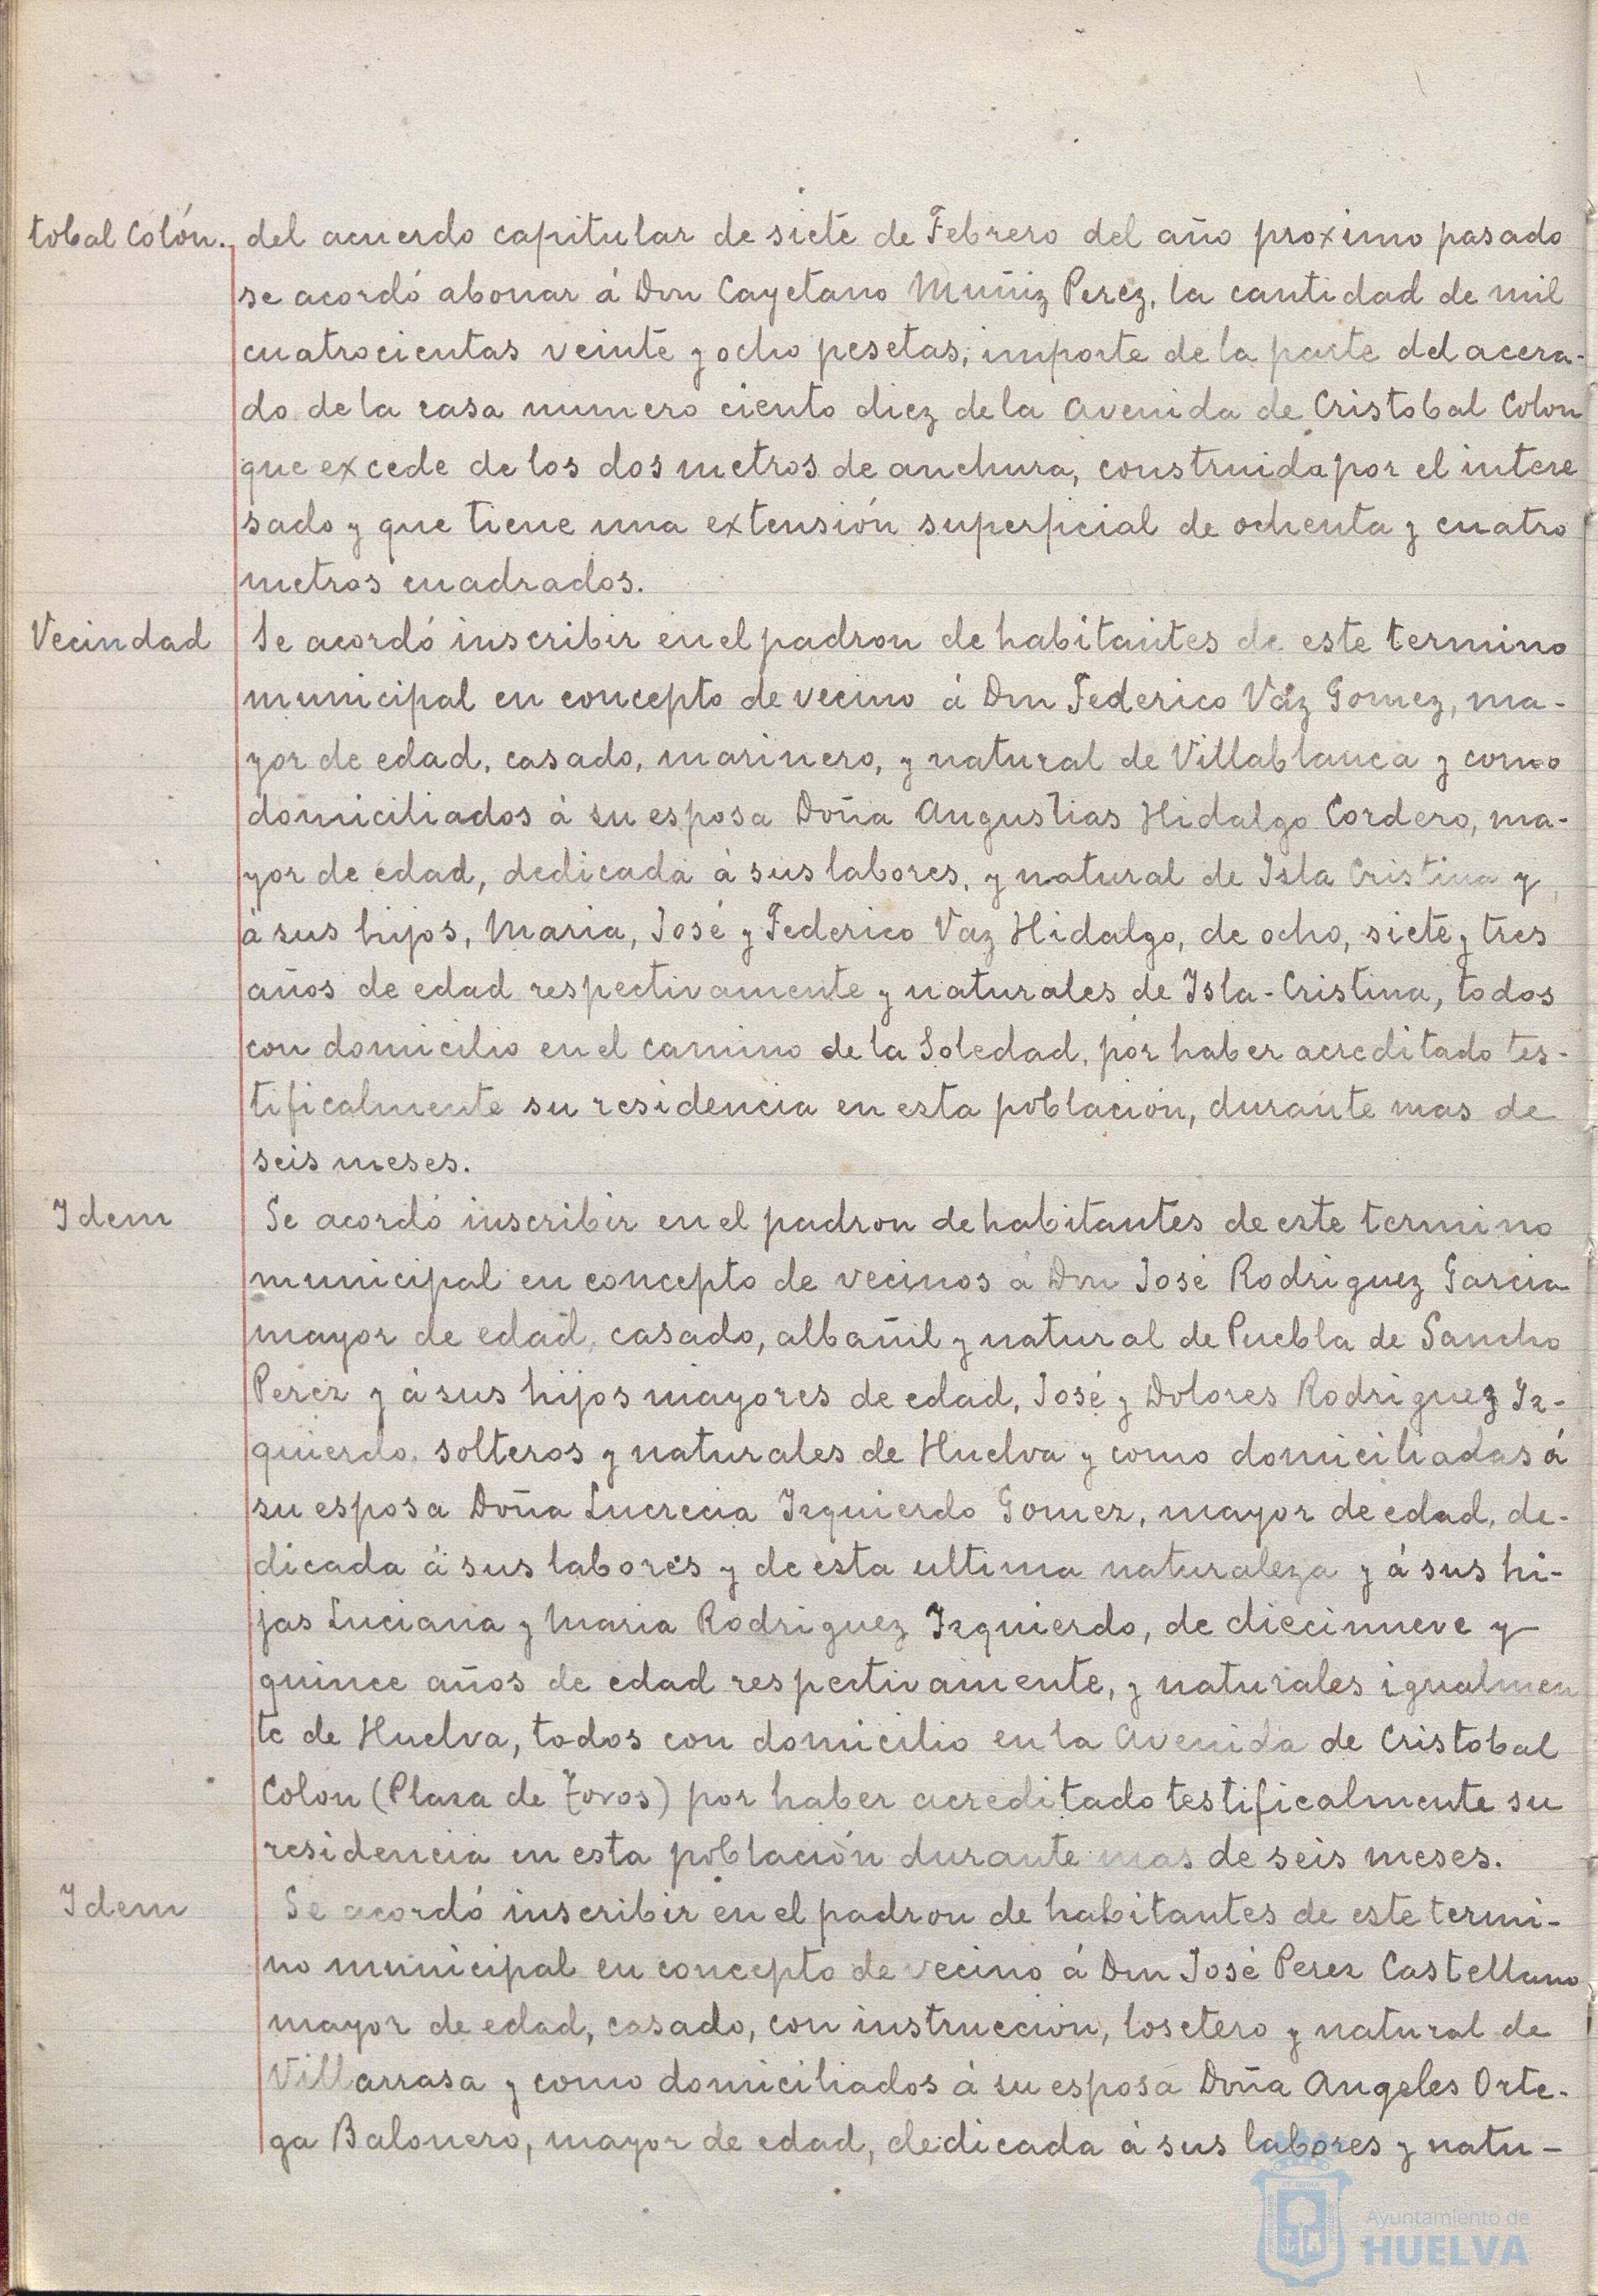 tobal Colón. del acuerdo capitular de siete de Febrero del año proximo pasado
se acordó abonar á Don Cayetano Muñiz Perez, la cantidad de mil
cuatrocientas veinte y ocho pesetas, importe de la parte del acera-
do de la casa numero ciento diez de la Avenida de Cristobal Colon
que excede de los dos metros de anchura, construida por el intere
sado y que tiene una extensión superficial de ochenta y cuatro
metros cuadrados.
Vecindad Se acordó inscribir en el padron de habitantes de este termino
municipal en concepto de vecino á Don Federico Váz Gomez, ma-
yor de edad, casado, marinero, y natural de Villablanca y como
domiciliados á su esposa Doña Augustias Hidalgo Cordero, ma-
yor de edad, dedicada á sus labores, y natural de Isla Cristina y
á sus hijos, Maria, José y Federico Vaz Hidalgo, de ocho, siete y tres
años de edad respectivamente y naturales de Isla-Cristina, todos
con domicilio en el camino de la Soledad, por haber acreditado tes-
tificalmente su residencia en esta población, durante mas de
seis meses.
Idem Se acordó inscribir en el padron de habitantes de este termino
municipal en concepto de vecinos á Don José Rodriguez Garcia
mayor de edad, casado, albañil y natural de Puebla de Sancho
Perez y á sus hijos mayores de edad, José y Dolores Rodriguez Iz-
quierdo, solteros y naturales de Huelva y como domiciliadas á
su esposa Doña Lucrecia Izquierdo Gomez, mayor de edad, de-
dicada á sus labores y de esta ultima naturaleza y á sus hi-
jas Luciana y Maria Rodriguez Izquierdo, de diecinueve y
quince años de edad respectivamente, y naturales igualmen
te de Huelva, todos con domicilio en la Avenida de Cristobal
Colón (Plaza de Toros) por haber acreditado testificalmente su
residencia en esta población durante mas de seis meses.
Idem Se acordó inscribir en el padron de habitantes de este termi-
no municipal en concepto de vecino á Don José Perez Castellano
mayor de edad, casado, con instruccion, losetero y natural de
Villarrasa y como domiciliados á su esposa Doña Angeles Orte-
ga Balonero, mayor de edad, dedicada á sus labores y natu-
Ayuntamiento de
HUELVA